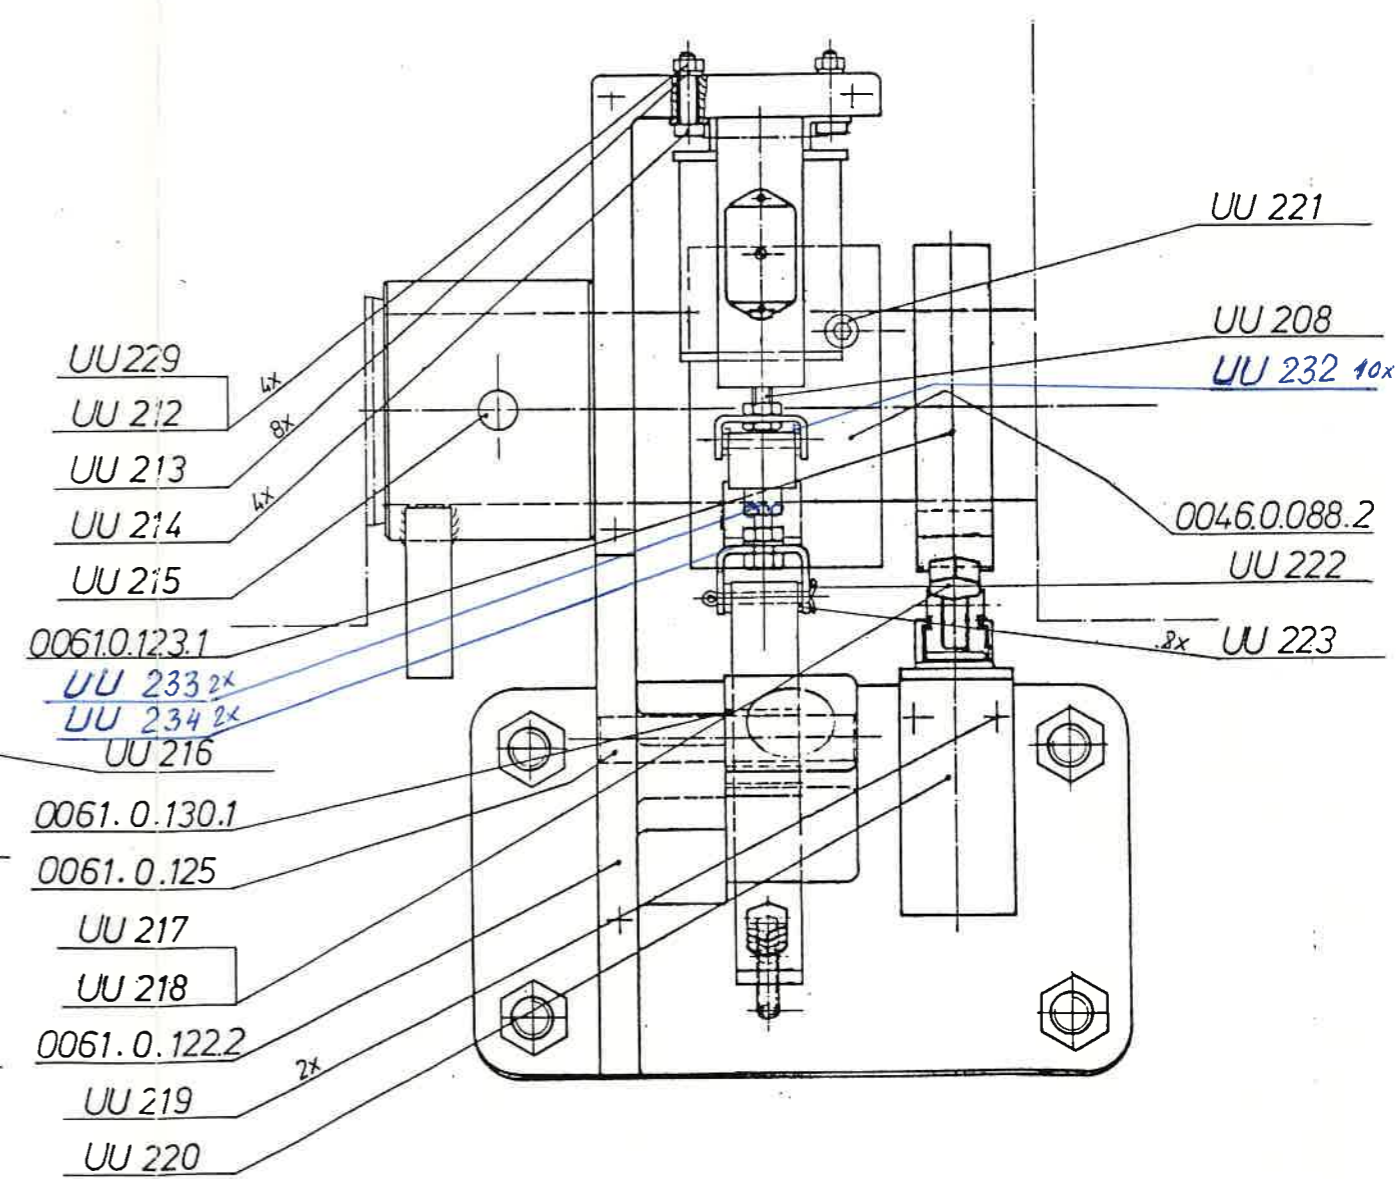 UU 229
UU 212
4x
UU 213
8x
UU 214
4x
UU 215
0061.0.123.1
UU 233 2x
UU 234 2x
UU 216
0061.0.130.1
0061.0.125
UU 217
UU 218
0061.0.122.2
UU 219
2x
UU 220
UU 221
UU 208
UU 232 10x
0046.0.088.2
UU 222
8x UU 223